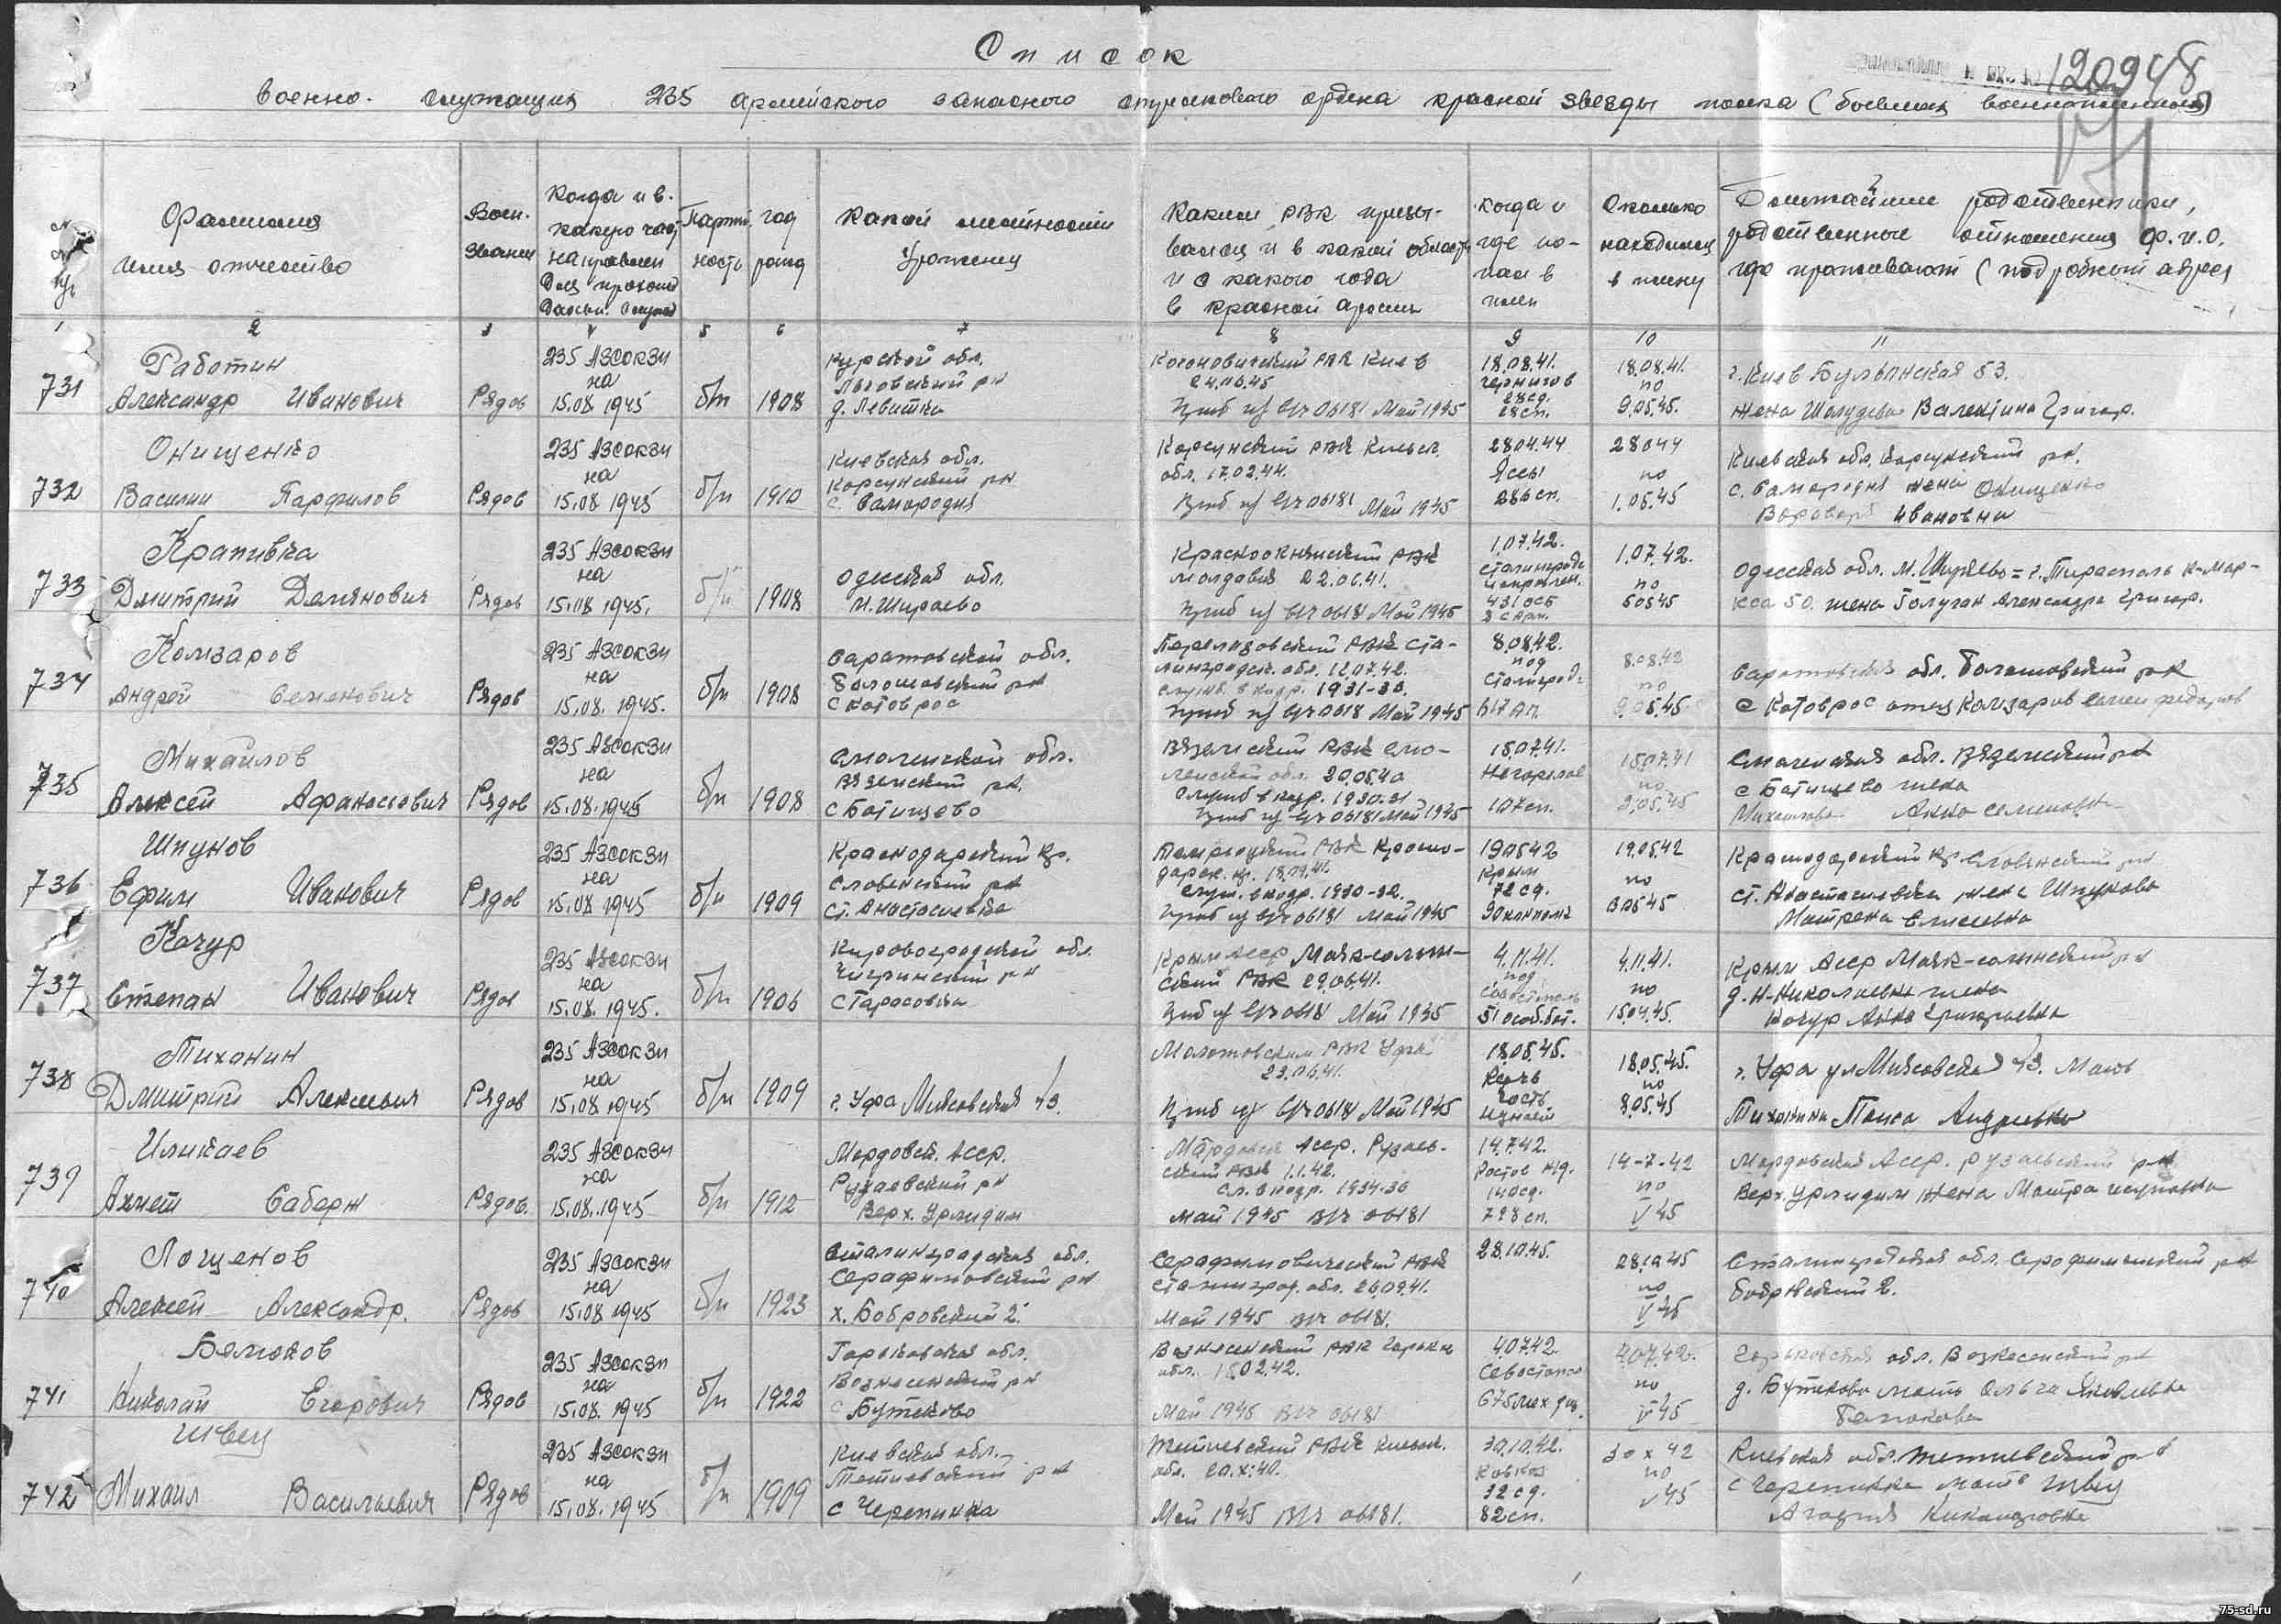 Список
120948
военно-служащих 235 армейского запасного стрелкового ордена красной звезды полка (бывших военнопленных)
171
Фамилия
имя отчество
Воен.
звание
Когда и в
какую част
направлен
для прохожд
дальн. службы
Партий
ность
год
рожд
Какой местности
уроженец
Каким РВК призы-
вался и в какой област
и с какого года
в красной армии
когда и
где по-
пал в
плен
Сколько
находился
в плену
Ближайшие родственники,
родственные отношения ф.и.о.
где проживают (подробный адрес
1 2 3 4 5 6 7 8 9 10 11
731
Работин
Александр Иванович
Рядов
235 АЗСОКЗп
на
15.08.1945
б/п
1908
Курской обл.
Льговский рн
д. Левшинка
24.06.45
Приб из в/ч 06181 Май 1945
18.08.41.
Чернигов
28сд.
28сп.
18.08.41.
по
9.05.45.
г. Киев Бульонская 53.
жена Валентина Григор.
732
Онищенко
Василий Парфилов
Рядов
235 АЗСОКЗп
на
15.08.1945
б/п
1910
Киевская обл.
Корсунский рн
с. Самородня
Корсунский РВК Киевск.
обл. 17.02.44.
Приб из в/ч 06181 Май 1945
28.04.44
Яссы
286сп.
28044
по
1.05.45
Киевская обл. Корсунский рн.
с. Самородня жена Онищенко
Варвара Ивановна
733
Крапивка
Дмитрий Демянович
Рядов
235 АЗСОКЗп
на
15.08.1945.
б/п
1908
Одесская обл.
м. Ширяево
Красноокнянский РВК
молдавия 22.06.41.
Приб из в/ч 06181 Май 1945
1.07.42.
Сталинград
1.07.42.
по
50545
Одесская обл. м. Ширяево = г. Тирасполь К-Мар-
кса 50. жена Голуган Александра Григор.
734
Колзаров
Андрей Семенович
Рядов
235 АЗСОКЗп
на
15.08.1945.
б/п
1908
Саратовской обл.
Балашовский рн
с Котоврас
Перелазовский РВК Ста-
линградск. обл. 12.07.42.
служ. в кадр. 1931-33.
Приб из в/ч 0618 Май 1945
8.08.42.
под
Сталинград
8.08.42
по
9.05.45
Саратовская обл. Балашовский рн
с Котоврас отец Колзаров Семен Федоров
735
Михайлов
Алексей Афанасьевич
Рядов
235 АЗСОКЗп
на
15.08.1945
б/п
1908
Смоленской обл.
Вяземский рн.
с Батищево
Вяземский РВК Смо-
ленской обл. 20.05.40
Служб в кадр. 1930-31
Приб из в/ч 06181 Май 1945
15.07.41.
107сп.
15.07.41
по
9.05.45
Смоленская обл. Вяземский рн
с Батищево жена
Михайлова Анна Семеновна
736
Шпунов
Ефим Иванович
Рядов
235 АЗСОКЗп
на
15.08.1945
б/п
1909
Краснодарский кр.
Славенский рн
Ст. Анастасиевка
Темрюкский РВК Красно-
дарск. кр.
служ. в кадр. 1930-32.
Приб из в/ч 06181 Май 1945
190542
Крым
72сд.
19.05.42
по
90545
Краснодарский кр. Славянский рн
ст. Анастасиевка жена Шпунова
Матрена Елисеевна
737
Качур
Степан Иванович
Рядов
235 АЗСОКЗп
на
15.08.1945.
б/п
1906
Кировоградской обл.
Чигринский рн
с Тарасовка
Крым АССР Маяк-салын-
ский РВК 29.06.41.
Приб из в/ч 06181 Май 1945
4.11.41.
под
Севастополь
51 особ.бат.
4.11.41.
по
15.04.45.
Крым АССР Маяк-салынский рн
д. Н-Николаевка жена
Качур Анна Григорьевна
738
Тихонин
Дмитрий Алексеевич
Рядов
235 АЗСОКЗп
на
15.08.1945
б/п
1909
г. Уфа Миясовская 43.
Молотовским РВК Уфа
23.06.41.
Приб из в/ч 06181 Май 1945
18.05.45.
Керчь
часть
не знает
18.05.45.
по
9.05.45
г. Уфа ул Миясовская 43. Мать
Тихонина Андреевна
739
Иликаев
Ахмет Сабарж
Рядов.
235 АЗСОКЗп
на
15.08.1945
б/п
1912
Мордовск. АССР.
Рузаевский рн
Верх. Урледим
Мордовск АССР. Рузаев-
ский РВК 1.1.42.
сл. в кадр. 1934-36
май 1945 в/ч 06181
14.7.42.
Ростов н/д.
140сд.
798сп.
14-7-42
по
V 45
Мордовская АССР. Рузаевский рн
Верх. Урледим жена
740
Лощенов
Алексей Александр.
Рядов
235 АЗСОКЗп
на
15.08.1945
б/п
1923
Сталинградская обл.
Серафимовский рн
х. Бобровский 2.
Серафимовический РВК
Сталинград. обл. 26.09.41.
Май 1945 в/ч 06181.
28.10.45.
28.10.45
по
V 45
Сталинградская обл. Серафимовский рн
Бобровский 2.
741
Балюков
Николай Егорович
Рядов
235 АЗСОКЗп
на
15.08.1945
б/п
1922
Горьковская обл.
Вознесенский рн
с Бутаково
Вознесенский РВК Горьк
обл. 15.02.42.
Май 1945 в/ч 06181
4.07.42.
Севастопол
4.07.42.
по
V 45
Горьковская обл. Вознесенский рн
д. Бутаково мать Ольга Яковлевна
Балюкова
742
Швец
Михаил Васильевич
Рядов
235 АЗСОКЗп
на
15.08.1945
б/п
1909
Киевская обл.
Тетиевский рн
с Черепинка
Тетиевский РВК Киевск.
обл. 20.X.40.
Май 1945 в/ч 06181.
30.10.42.
Кавказ
32сд.
82сп.
30 X 42
по
V 45
Киевская обл. Тетиевский рн
с Черепинка мать Швец
Агафия Никаноровна
75-sd.ru